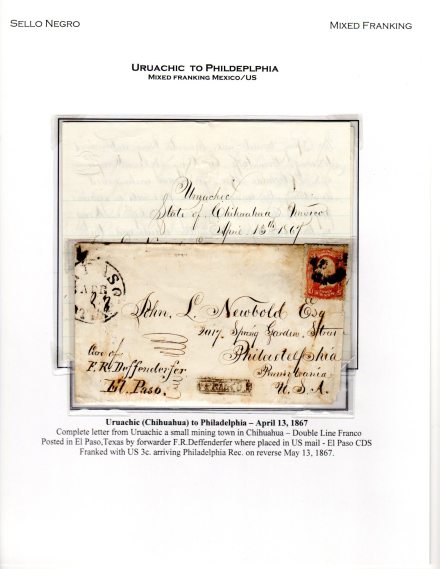 SELLO NEGRO
MIXED FRANKING
URUACHIC TO PHILDEPLPHIA
MIXED FRANKING MEXICO/US
Uruachic
State of Chihuahua Mexico
April 13th 1867
PASO
APR
27
John L. Newbold Esq
2017 Spring Garden Street
Philadelphia
Pennsylvania
U.S.A.
Care of
F. R. Deffenderfer
El Paso.
FRANCO
Uruachic (Chihuahua) to Philadelphia – April 13, 1867
Complete letter from Uruachic a small mining town in Chihuahua – Double Line Franco
Posted in El Paso,Texas by forwarder F.R.Deffenderfer where placed in US mail - El Paso CDS
Franked with US 3c. arriving Philadelphia Rec. on reverse May 13, 1867.